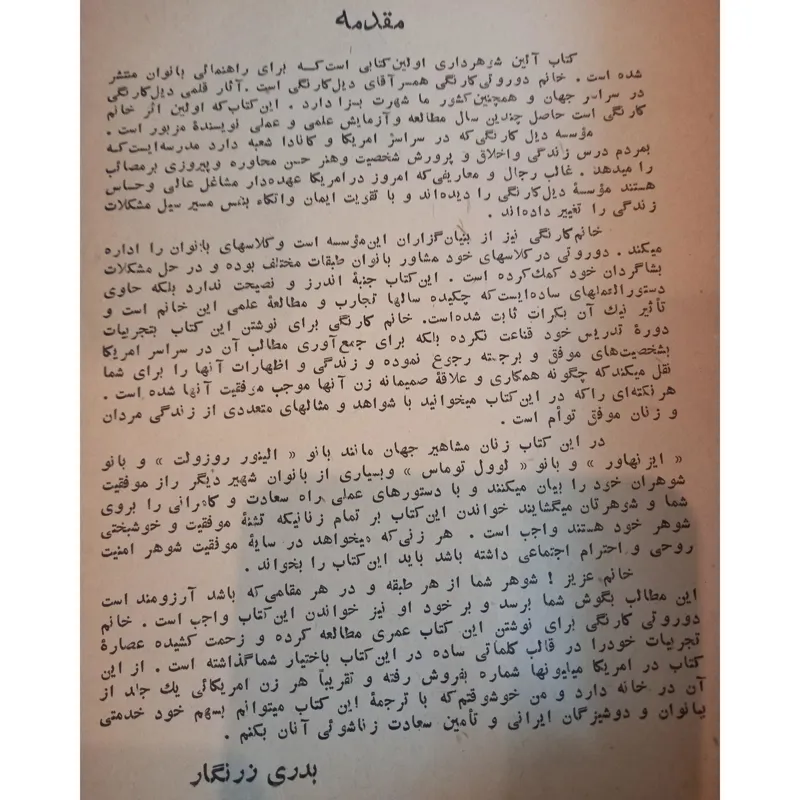 مقدمه
کتاب آئین شوهرداری اولین کتابی است که برای راهنمائی بانوان منتشر
شده است . خانم دوروتی کارنگی همسر آقای دیل کارنگی است . آثار قلمی دیل کارنگی
در سراسر جهان و همچنین کشور ما شهرت بسزا دارد . این کتاب که اولین اثر خانم
کارنگی است حاصل چندین سال مطالعه و آزمایش علمی و عملی نویسندهٔ مزبور است .
مؤسسه دیل کارنگی که در سراسر امریکا و کانادا شعبه دارد مدرسه ایست که
بمردم درس زندگی و اخلاق و پرورش شخصیت و هنر حسن محاوره و پیروزی بر مصائب
را میدهد . غالب رجال و معاریفی که امروز در امریکا عهده دار مشاغل عالی و حساس
هستند مؤسسهٔ دیل کارنگی را دیده اند و با تقویت ایمان و اتکاء بنفس مسیر سیل مشکلات
زندگی را تغییر داده اند .
خانم کارنگی نیز از بنیان گزاران این مؤسسه است و کلاسهای بانوان را اداره
میکند . دوروتی در کلاسهای خود مشاور بانوان طبقات مختلف بوده و در حل مشکلات
بشاگردان خود کمك کرده است . این کتاب جنبهٔ اندرز و نصیحت ندارد بلکه حاوی
دستورالعملهای ساده ایست که چکیده سالها تجارب و مطالعهٔ علمی این خانم است و
تأثیر نیك آن بکرات ثابت شده است. خانم کارنگی برای نوشتن این کتاب بتجربیات
دورهٔ تدریس خود قناعت نکرده بلکه برای جمع آوری مطالب آن در سراسر امریکا
بشخصیت های موفق و برجسته رجوع نموده و زندگی و اظهارات آنها را برای شما
نقل میکند که چگونه همکاری و علاقهٔ صمیمانه زن آنها موجب موفقیت آنها شده است .
هر نکته ای را که در این کتاب میخوانید با شواهد و مثالهای متعددی از زندگی مردان
و زنان موفق توأم است .
در این کتاب زنان مشاهیر جهان مانند بانو « الینور روزولت » و بانو
« ایزنهاور » و بانو « لوول توماس » وبسیاری از بانوان شهیر دیگر راز موفقیت
شوهران خود را بیان میکنند و با دستورهای عملی راه سعادت و کامرانی را بروی
شما و شوهرتان میگشایند خواندن این کتاب بر تمام زنانیکه تشنهٔ موفقیت و خوشبختی
شوهر خود هستند واجب است . هر زنی که میخواهد در سایهٔ موفقیت شوهر امنیت
روحی و احترام اجتماعی داشته باشد باید این کتاب را بخواند .
خانم عزیز ! شوهر شما از هر طبقه و در هر مقامی که باشد آرزومند است
این مطالب بگوش شما برسد و بر خود او نیز خواندن این کتاب واجب است . خانم
دوروتی کارنگی برای نوشتن این کتاب عمری مطالعه کرده و زحمت کشیده عصارهٔ
تجربیات خودرا در قالب کلماتی ساده در این کتاب باختیار شما گذاشته است . از این
کتاب در امریکا میلیونها شماره بفروش رفته و تقریباً هر زن امریکائی یك جلد از
آن در خانه دارد و من خوشوقتم که با ترجمهٔ این کتاب میتوانم بسهم خود خدمتی
ببانوان و دوشیزگان ایرانی و تأمین سعادت زناشوئی آنان بکنم .
بدری زرنگار